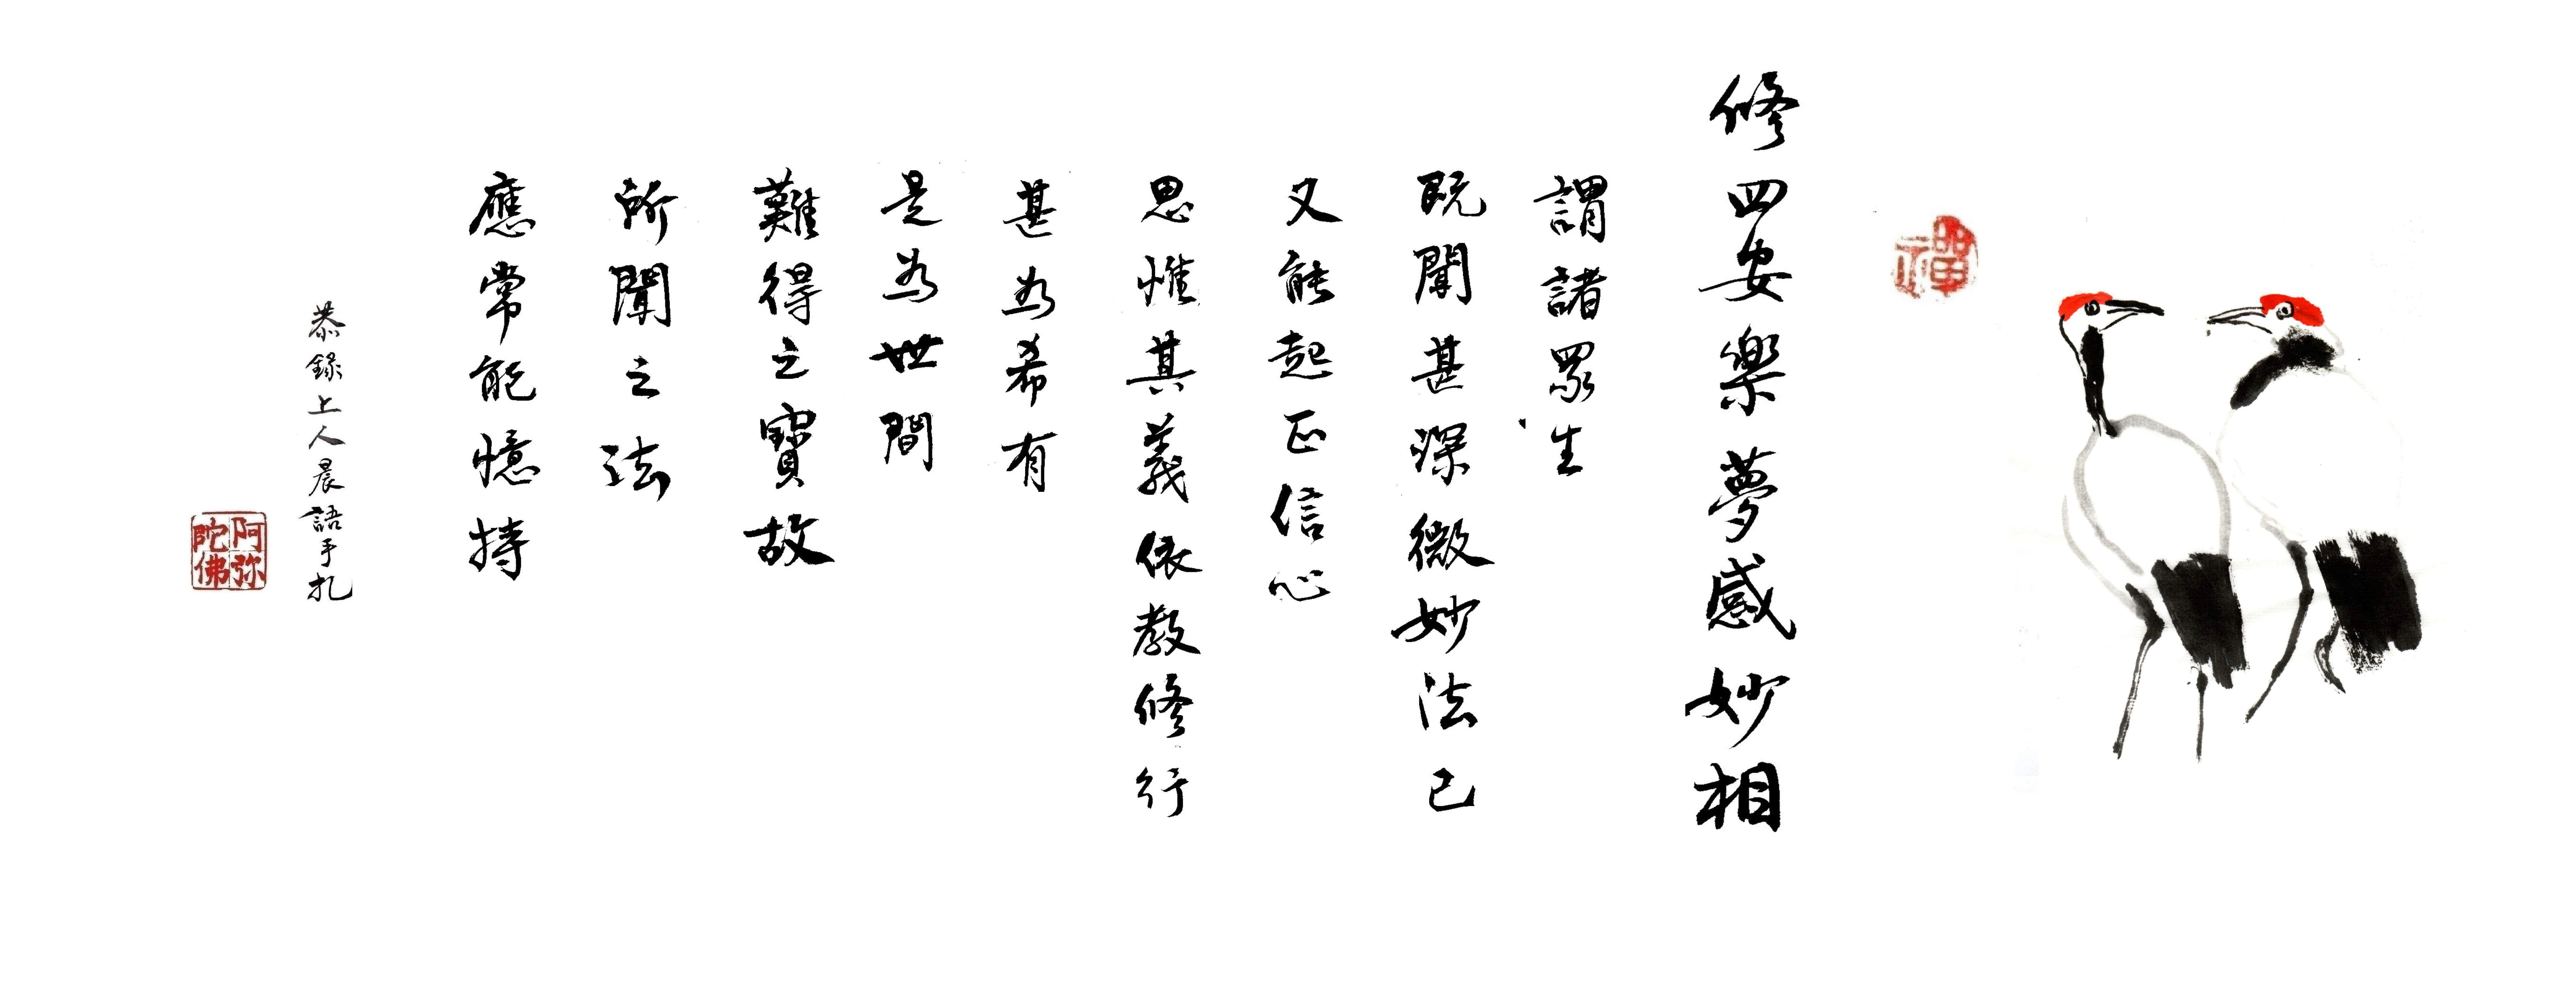 禪
修四安樂夢感妙相
謂諸眾生
既聞甚深微妙法已
又能起正信心
思惟其義依教修行
甚為希有
是為世間
難得之寶故
所聞之法
應常能憶持
恭錄上人晨語手札
阿弥陀佛